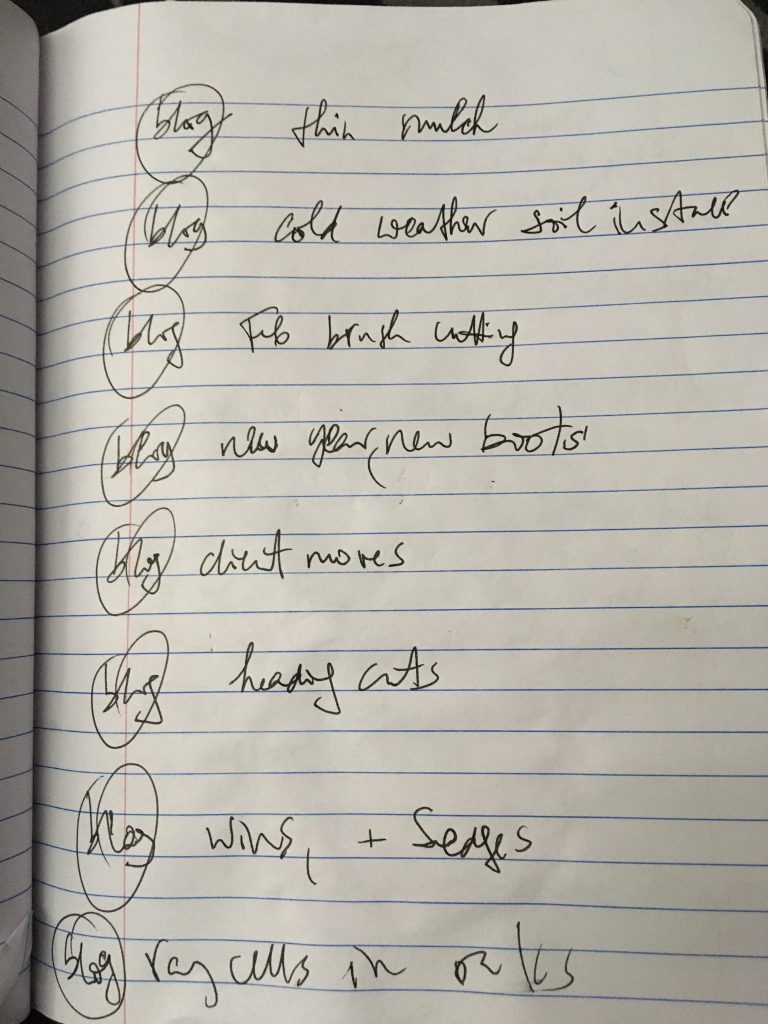 blog thin mulch
blog cold weather soil install
blog Feb brush cutting
blog new year, new boots
blog client moves
blog heading cuts
blog wins, + Sedges
blog ray cells in oaks